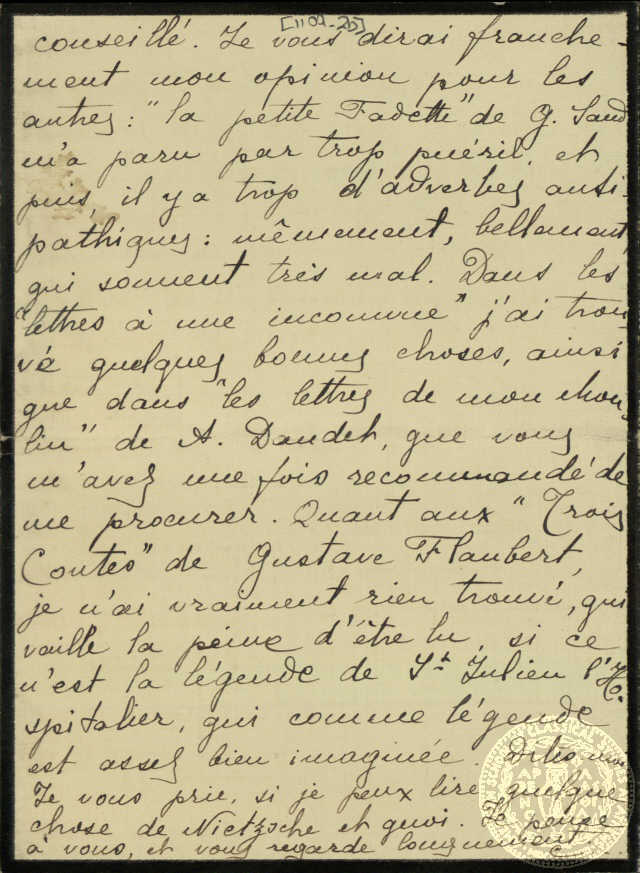 [1109-205]
conseillé. Je vous dirai franche-
ment mon opinion pour les
autres: "la petite Fadette" de G. Sand
m'a paru par trop puéril, et
puis, il y a trop d'adverbes anti-
pathiques: mêmement, bellement,
qui sonnent très mal. Dans les
"lettres à une inconnue" j'ai trou-
vé quelques bonnes choses, ainsi
que dans "les lettres de mon mou-
lin" de A. Daudet, que vous
m'avez une fois recommandé de
me procurer. Quant aux "Trois
Contes" de Gustave Flaubert,
je n'ai vraiment rien trouvé, qui
vaille la peine d'être lu, si ce
n'est la légende de St Julien l'Ho-
spitalier, qui comme légende
est assez bien imaginée. Dites-moi
Je vous prie, si je peux lire quelque
chose de Nietzsche et quoi. Je pense
à vous, et vous regarde longuement.